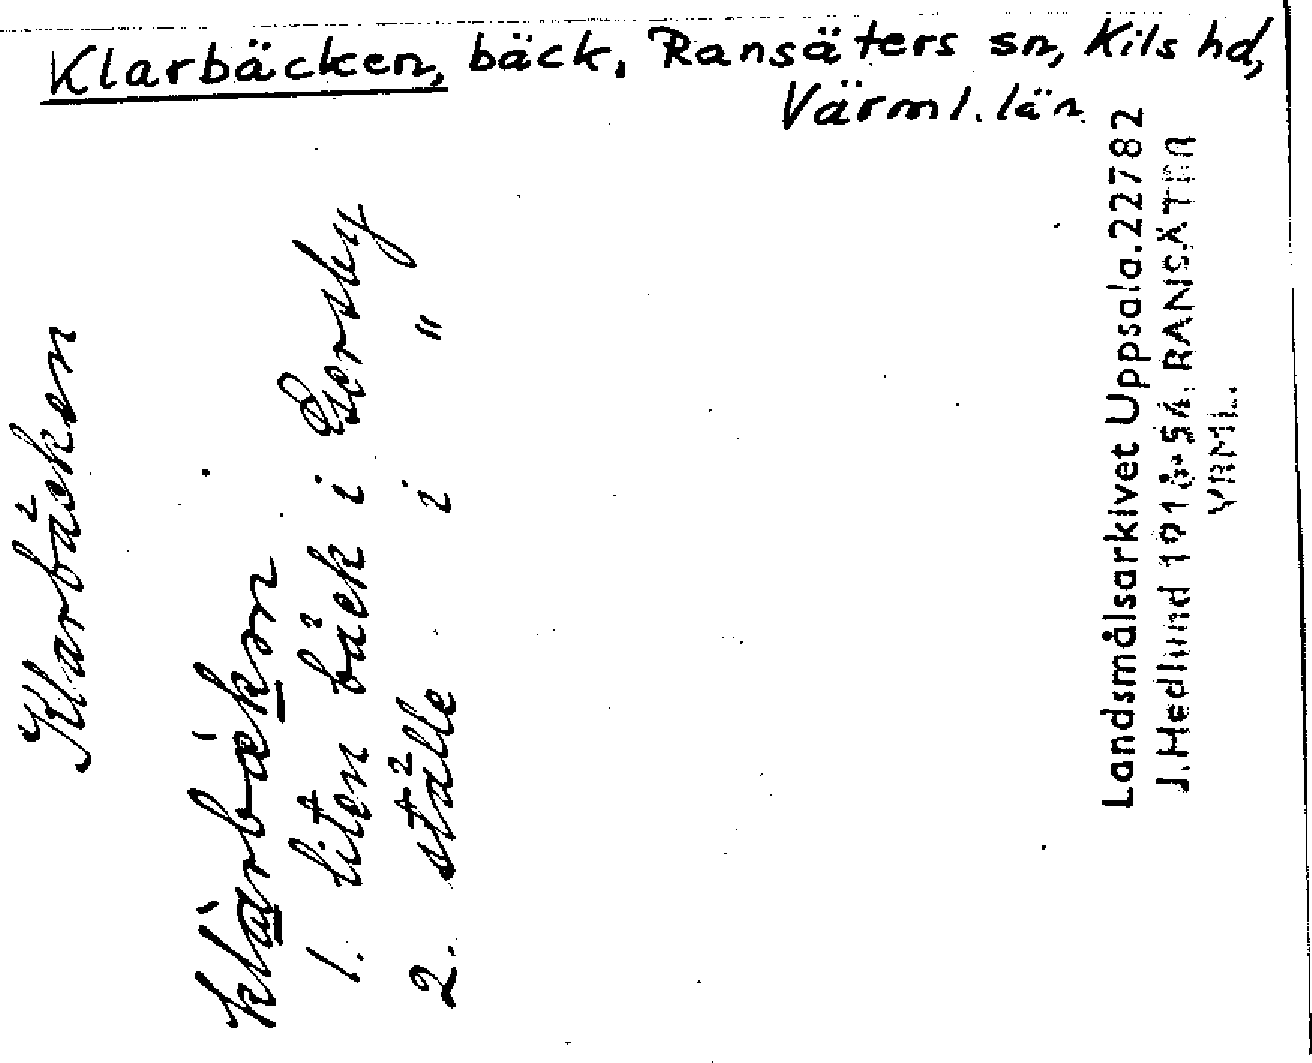 Klarbäcken, bäck, Ransäters sn, Kils hd,
Värml. län
Klarbäcken
klàrbàkən
1. liten bäck i Gersby
2. ställe i "
Landsmålsarkivet Uppsala. 22782
J. Hedlund 1918-54. RANSÄTER
VRML.